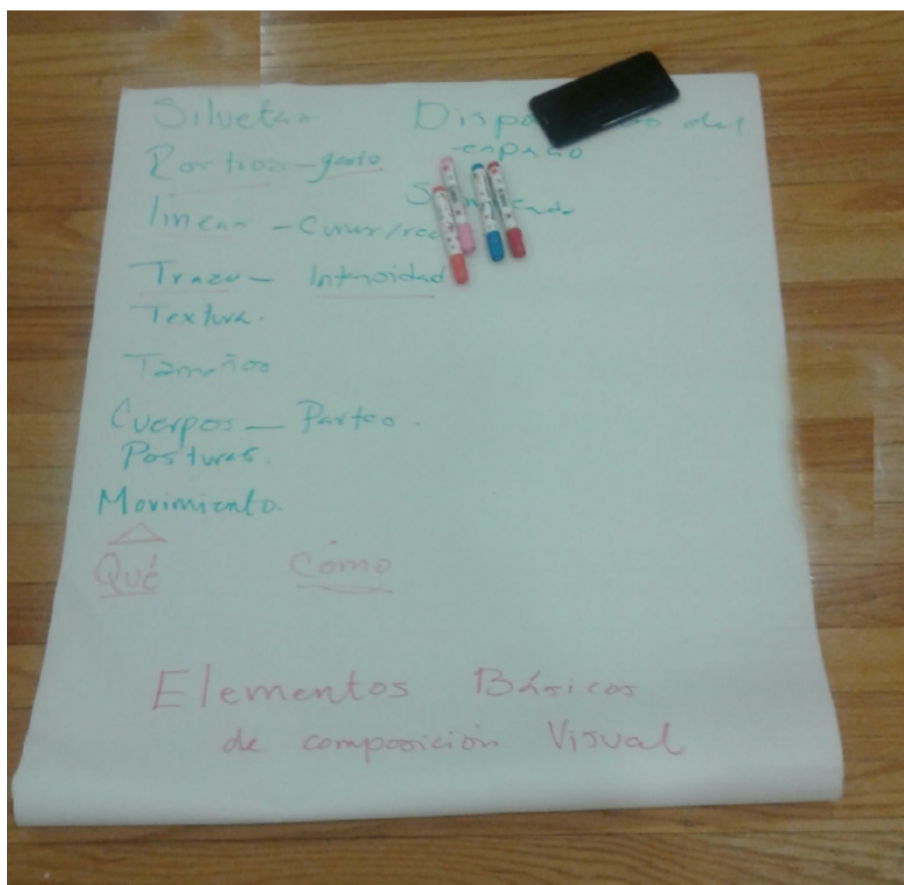 Siluetas
Rostros - gesto
lineas - Curvas/rec
Trazo - Intensidad
Textura.
Tamaños
Cuerpos - Partes.
Posturas.
Movimiento.
Qué Cómo
del
espacio
Elementos Básicos
de composición Visual